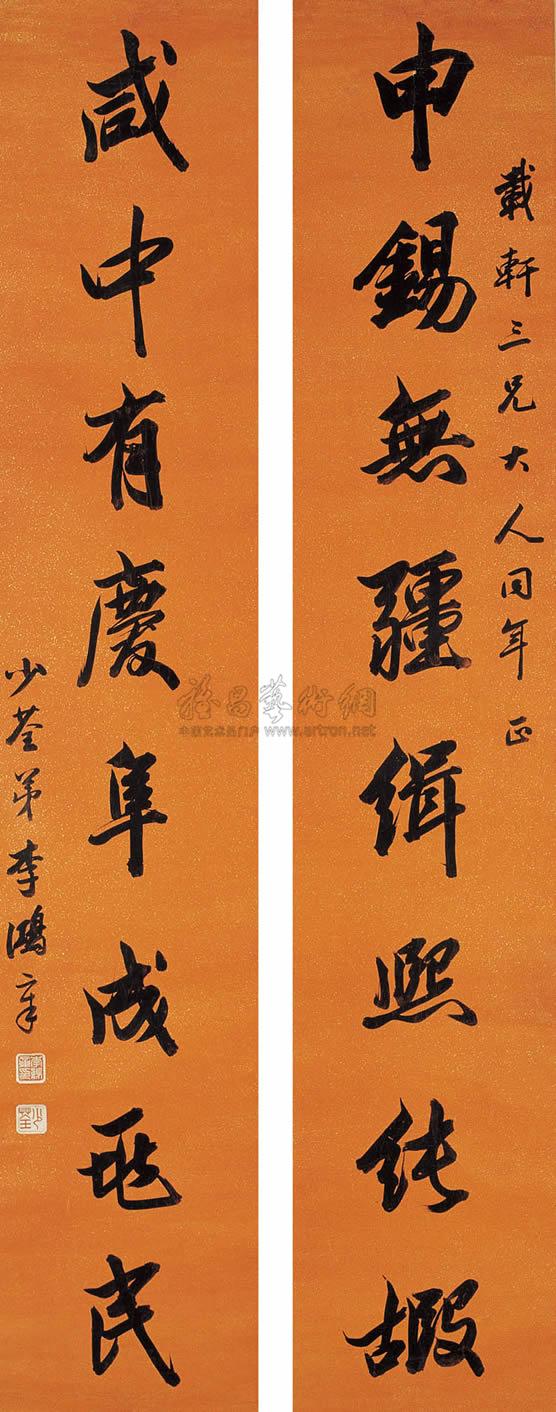 載軒三兄大人同年正
申錫無疆緝熙純嘏
咸中有慶阜成兆民
少荃弟李鴻章
雅昌藝術網
中国艺术品门户 www.artron.net